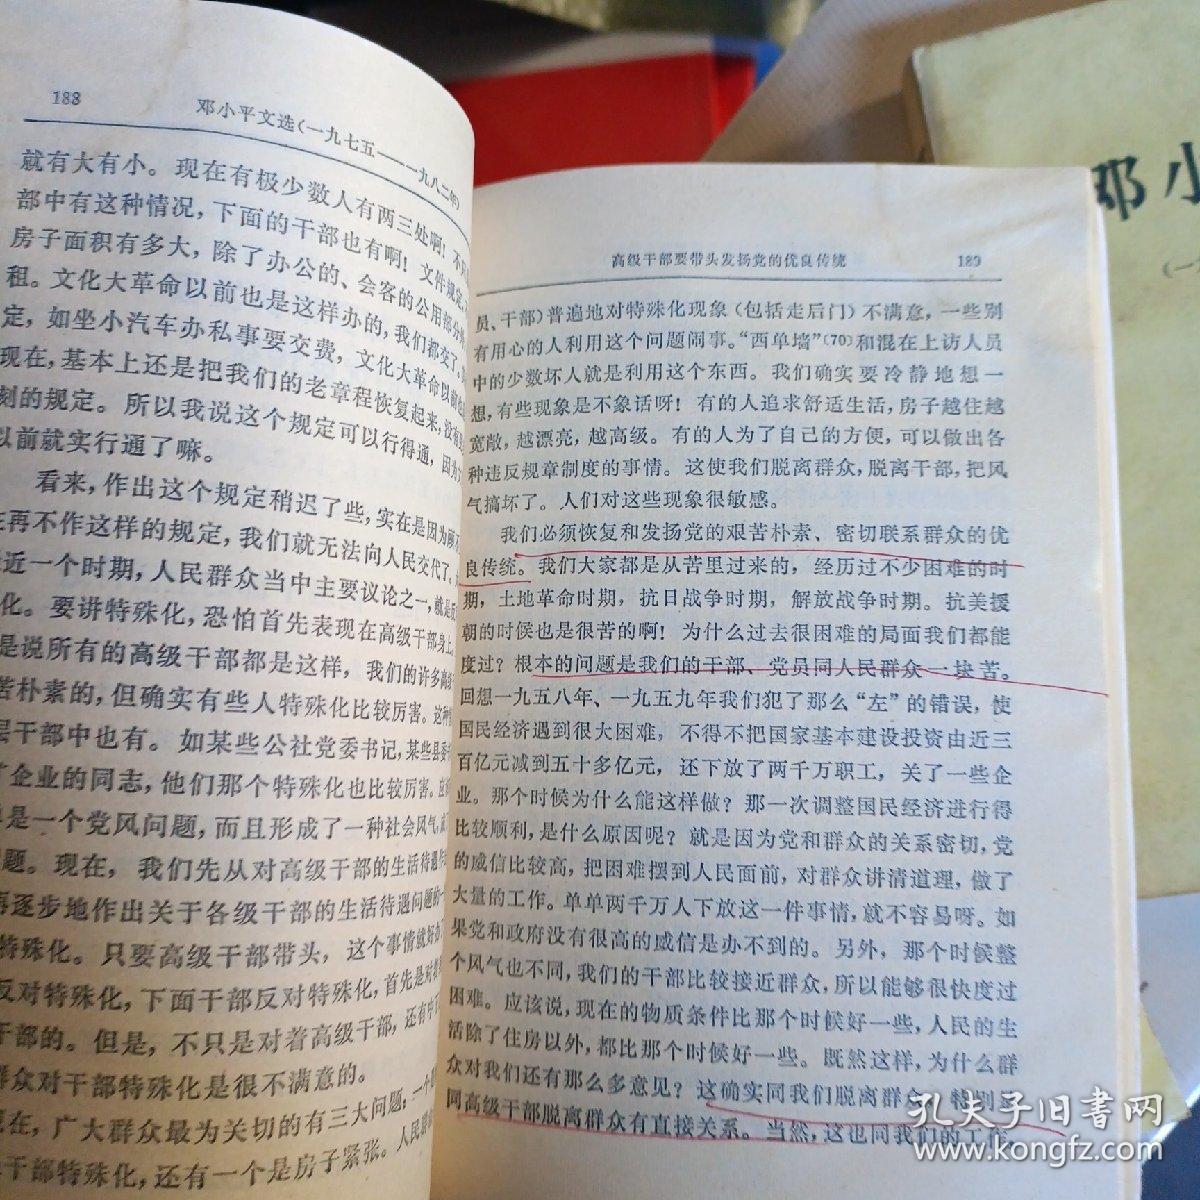 188
邓小平文选(一九七五——一九八二年)
就有大有小。现在有极少数人有两三处啊！不只
部中有这种情况，下面的干部也有啊！文件规定，
房子面积有多大，除了办公的、会客的公用部分
租。文化大革命以前也是这样办的，我们都交了。
定，如坐小汽车办私事要交费，文化大革命以前
现在，基本上还是把我们的老章程恢复起来，没有
刻的规定。所以我说这个规定可以行得通，因为
以前就实行通了嘛。
看来，作出这个规定稍迟了些，实在是因为顾
在再不作这样的规定，我们就无法向人民交代了。
近一个时期，人民群众当中主要议论之一，就是反
化。要讲特殊化，恐怕首先表现在高级干部身上。
是说所有的高级干部都是这样，我们的许多高级
苦朴素的，但确实有些人特殊化比较厉害。这种
层干部中也有。如某些公社党委书记，某些县委
企业的同志，他们那个特殊化也比较厉害。应
是一个党风问题，而且形成了一种社会风气，
题。现在，我们先从对高级干部的生活待遇
再逐步地作出关于各级干部的生活待遇问题的
特殊化。只要高级干部带头，这个事情就好办
反对特殊化，下面干部反对特殊化，首先是对着
干部的。但是，不只是对着高级干部，还有
群众对干部特殊化是很不满意的。
现在，广大群众最为关切的有三大问题，一个
是干部特殊化，还有一个是房子紧张。人民
高级干部要带头发扬党的优良传统
189
员、干部)普遍地对特殊化现象(包括走后门)不满意，一些别
有用心的人利用这个问题闹事。“西单墙”(70)和混在上访人员
中的少数坏人就是利用这个东西。我们确实要冷静地想一
想，有些现象是不象话呀！有的人追求舒适生活，房子越住越
宽敞，越漂亮，越高级。有的人为了自己的方便，可以做出各
种违反规章制度的事情。这使我们脱离群众，脱离干部，把风
气搞坏了。人们对这些现象很敏感。
我们必须恢复和发扬党的艰苦朴素、密切联系群众的优
良传统。我们大家都是从苦里过来的，经历过不少困难的时
期，土地革命时期，抗日战争时期，解放战争时期。抗美援
朝的时候也是很苦的啊！为什么过去很困难的局面我们都能
度过？根本的问题是我们的干部、党员同人民群众一块苦。
回想一九五八年、一九五九年我们犯了那么“左”的错误，使
国民经济遇到很大困难，不得不把国家基本建设投资由近三
百亿元减到五十多亿元，还下放了两千万职工，关了一些企
业。那个时候为什么能这样做？那一次调整国民经济进行得
比较顺利，是什么原因呢？就是因为党和群众的关系密切，党
的威信比较高，把困难摆到人民面前，对群众讲清道理，做了
大量的工作。单单两千万人下放这一件事情，就不容易呀。如
果党和政府没有很高的威信是办不到的。另外，那个时候整
个风气也不同，我们的干部比较接近群众，所以能够很快度过
困难。应该说，现在的物质条件比那个时候好一些，人民的生
活除了住房以外，都比那个时候好一些。既然这样，为什么群
众对我们还有那么多意见？这确实同我们脱离群众，特别是
同高级干部脱离群众有直接关系。当然，这也同我们的工作
邓小
(一
孔夫子旧书网
www.kongfz.com